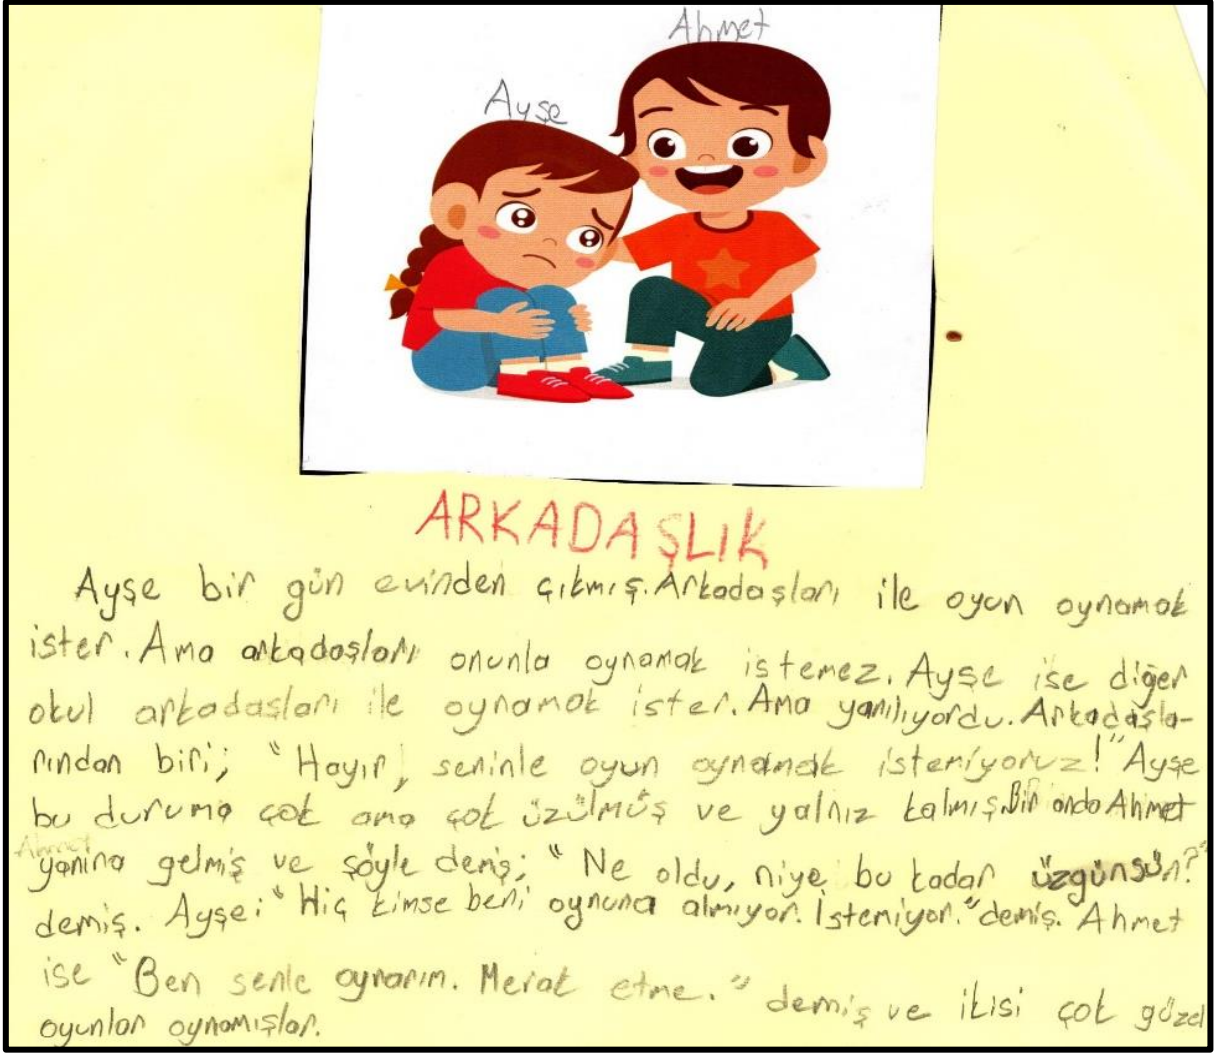 Ahmet
Ayşe
ARKADAŞLIK
Ayşe bir gün evinden çıkmış. Arkadaşları ile oyun oynamak
ister. Ama arkadaşları onunla oynamak istemez. Ayşe ise diğer
okul arkadaşları ile oynamak ister. Ama yanılıyordu. Arkadaşla-
rından biri; "Hayır, seninle oyun oynamak istemiyoruz!" Ayşe
bu duruma çok ama çok üzülmüş ve yalnız kalmış. Bir anda Ahmet
Ahmet
yanına gelmiş ve şöyle demiş; "Ne oldu, niye bu kadar üzgünsün?"
demiş. Ayşe: "Hiç kimse beni oynuna almıyor. İstemiyor." demiş. Ahmet
ise "Ben senle oynarım. Merak etme." demiş ve ikisi çok güzel
oyunlar oynamışlar.